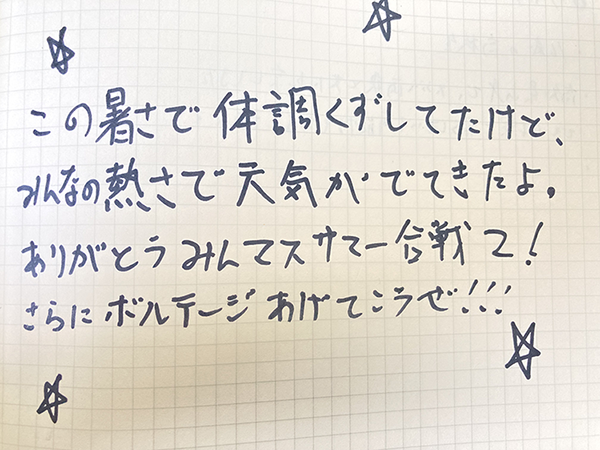 この暑さで体調くずしてたけど、
みんなの熱さで天気がでてきたよ。
ありがとうみんてスサマー合戦て!
さらにボルテージあげてこうぜ!!!